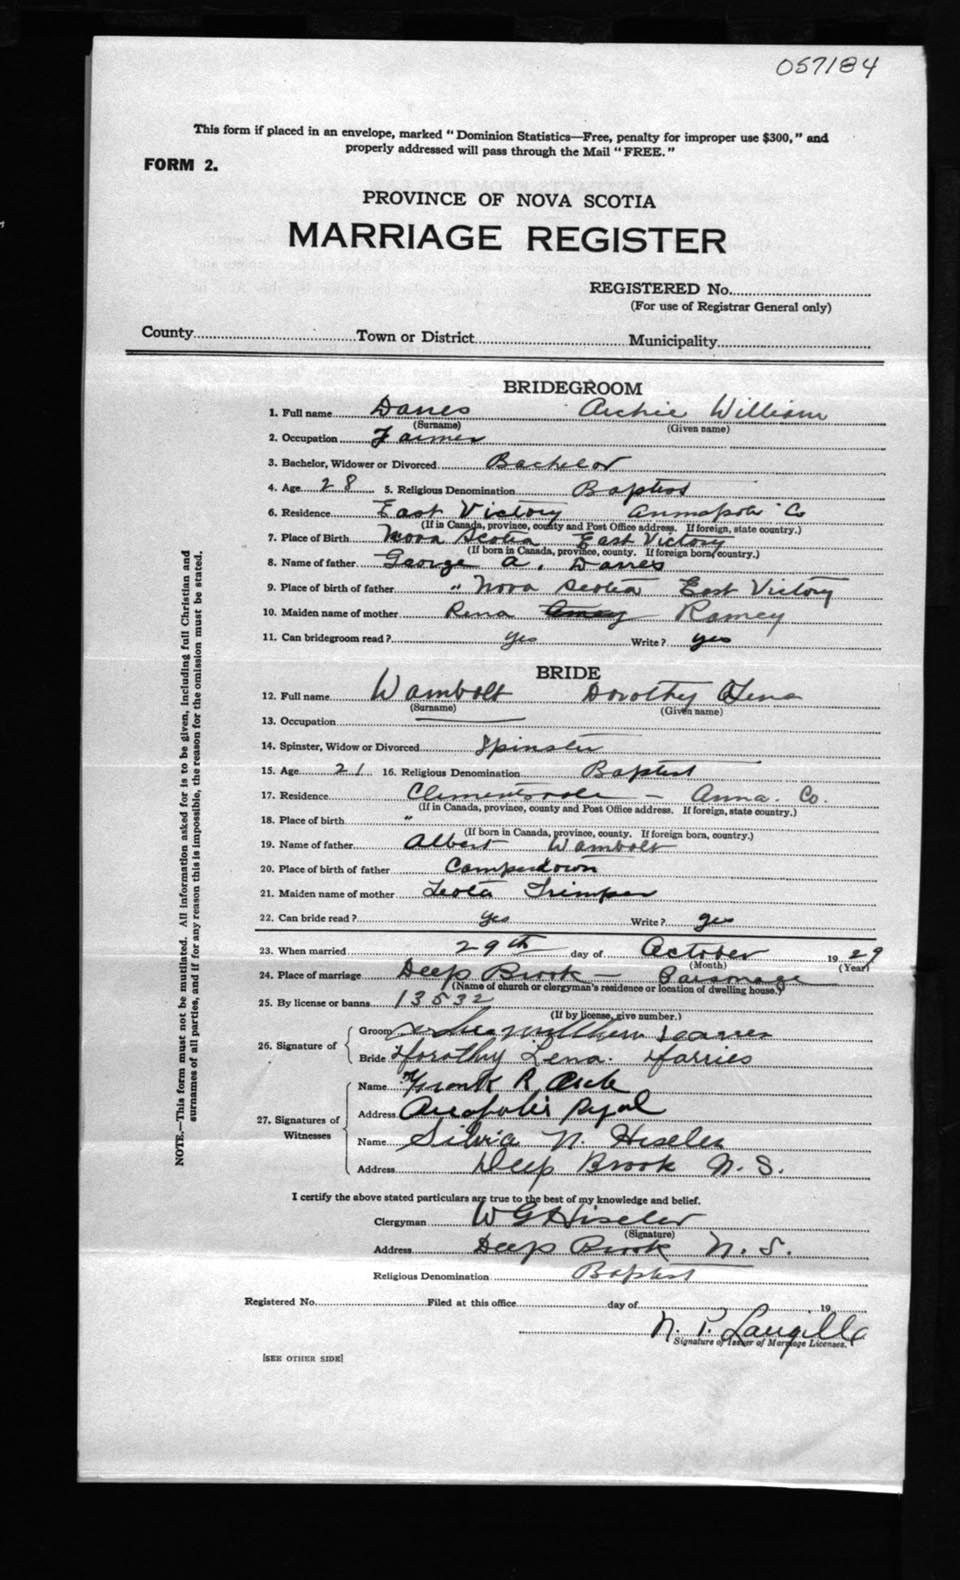 057184
This form if placed in an envelope, marked "Dominion Statistics—Free, penalty for improper use $300," and
properly addressed will pass through the Mail "FREE."
FORM 2.
PROVINCE OF NOVA SCOTIA
MARRIAGE REGISTER
REGISTERED No.
(For use of Registrar General only)
County Town or District Municipality
BRIDEGROOM
1. Full name Danes Archie William
(Surname) (Given name)
2. Occupation Farmer
3. Bachelor, Widower or Divorced Bachelor
4. Age 28 5. Religious Denomination Baptist
6. Residence East Victory Annapolis Co
(If in Canada, province, county and Post Office address. If foreign, state country.)
7. Place of Birth Nova Scotia East Victory
(If born in Canada, province, county. If foreign born, country.)
8. Name of father George A. Danes
9. Place of birth of father " Nova Scotia East Victory
10. Maiden name of mother Rena Ramey
11. Can bridegroom read? yes Write? yes
BRIDE
12. Full name Wambolt Dorothy Lena
(Surname) (Given name)
13. Occupation
14. Spinster, Widow or Divorced Spinster
15. Age 21 16. Religious Denomination Baptist
17. Residence Clementsvale — Anna. Co.
(If in Canada, province, county and Post Office address. If foreign, state country.)
18. Place of birth "
(If born in Canada, province, county. If foreign born, country.)
19. Name of father Albert Wambolt
20. Place of birth of father Camperdown
21. Maiden name of mother Leota Trimper
22. Can bride read? yes Write? yes
23. When married 29th day of October 1929
(Month) (Year)
24. Place of marriage Deep Brook — Parsonage
(Name of church or clergyman's residence or location of dwelling house.)
25. By license or banns 13532
(If by license, give number.)
26. Signature of
Groom
Bride Dorothy Lena
27. Signatures of Witnesses
Name Frank R
Address Royal
Name Silvia N. Hiseler
Address Deep Brook N. S.
I certify the above stated particulars are true to the best of my knowledge and belief.
Clergyman W G Hiseler
(Signature)
Address Deep Brook N. S.
Religious Denomination Baptist
Registered No. Filed at this office day of 19
N. P. Langille
Signature of Issuer of Marriage Licenses.
[SEE OTHER SIDE]
NOTE.—This form must not be mutilated. All information asked for is to be given, including full Christian and
surnames of all parties, and if for any reason this is impossible, the reason for the omission must be stated.